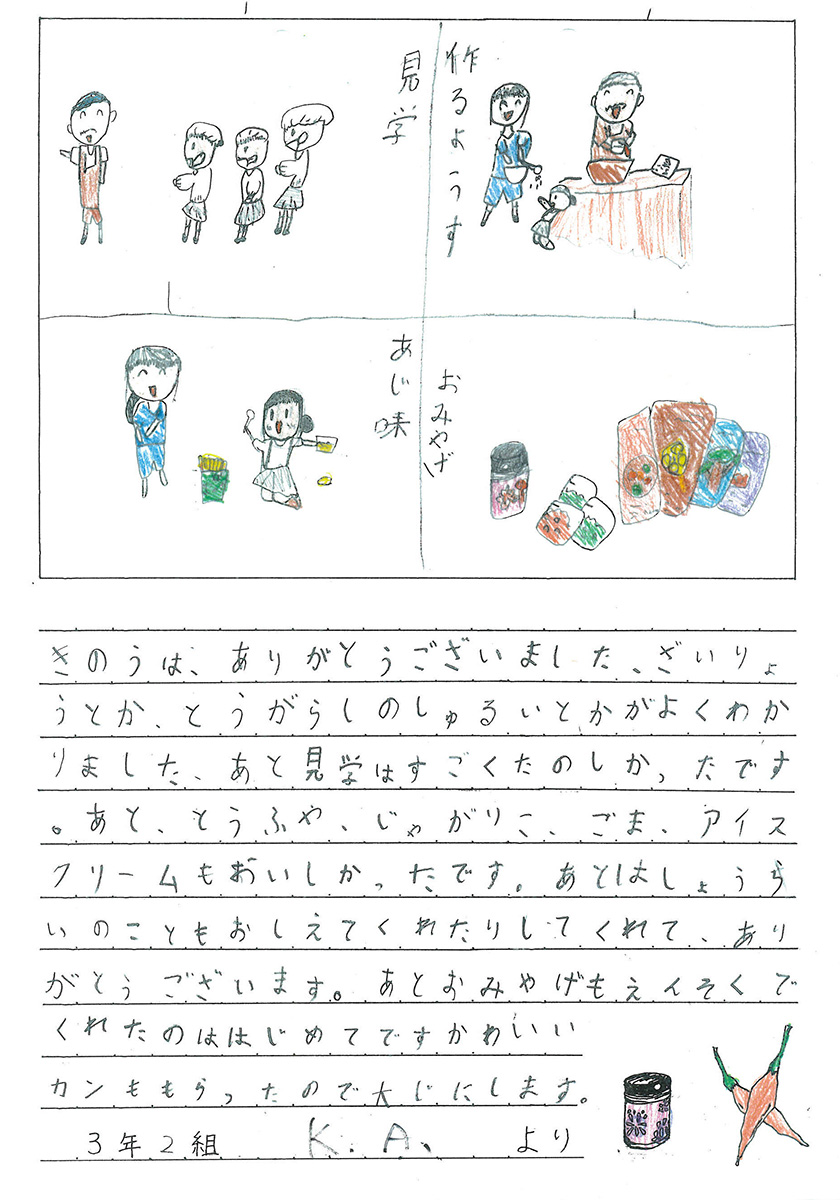 作るようす
見学
おみやげ
あじ味
きのうは、ありがとうございました、ざいりょ
うとか、とうがらしのしゅるいとかがよくわか
りました、あと見学はすごくたのしかったです
。あと、とうふや、じゃがりこ、ごま、アイス
クリームもおいしかったです。あとはしょうら
いのこともおしえてくれたりしてくれて、あり
がとうございます。あとおみやげもえんそくで
くれたのははじめてですかわいいい
カンももらったので大じにします。
3年2組 K.A. より